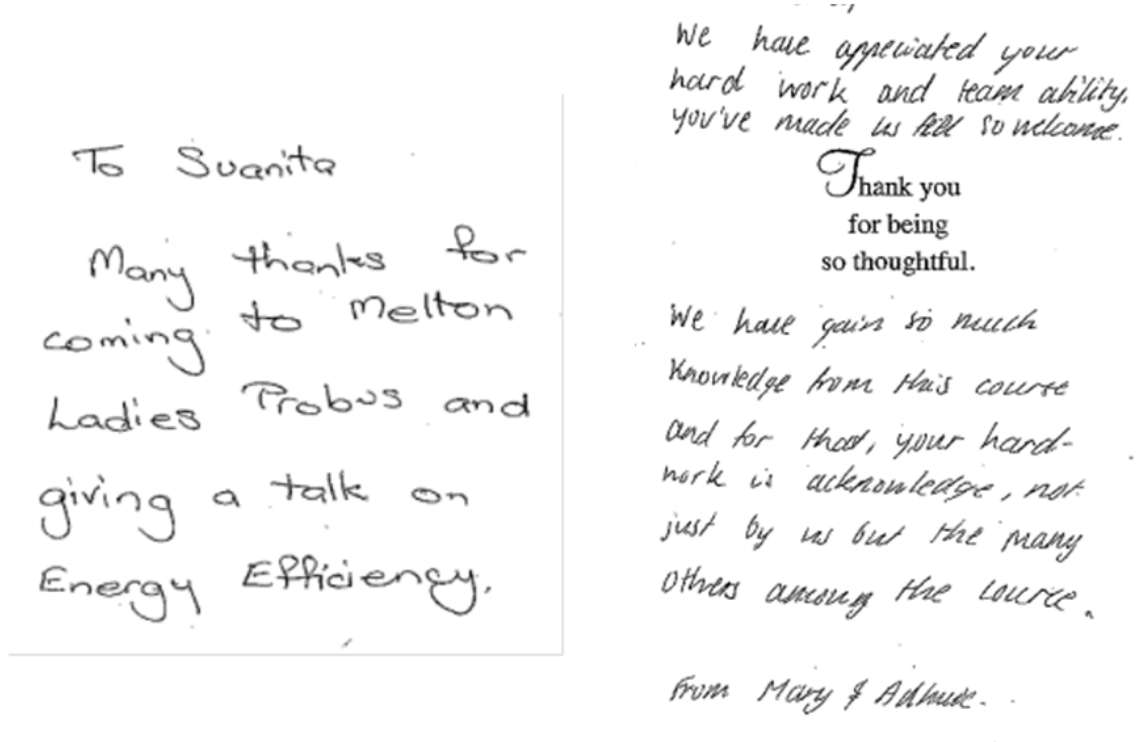 To Suanita
Many thanks for
coming to Melton
Ladies Probus and
giving a talk on
Energy Efficiency.
We have appeciated your
hard work and team ability,
you've made us feel so welcome.
Thank you
for being
so thoughtful.
We have gain so much
knowledge from this course
and for that, your hard-
work is acknowledge, not
just by us but the many
others among the cource.
From Mary &